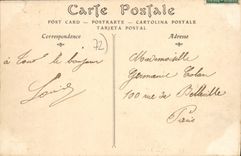 Carte Postale
POST CARD – POSTKARTE – CARTOLINA POSTALE
TARJETA POSTAL
Correspondence
Adresse
72
à tous le bonjour
Louis
Mademoiselle
Germaine
100 rue de Belleville
Paris